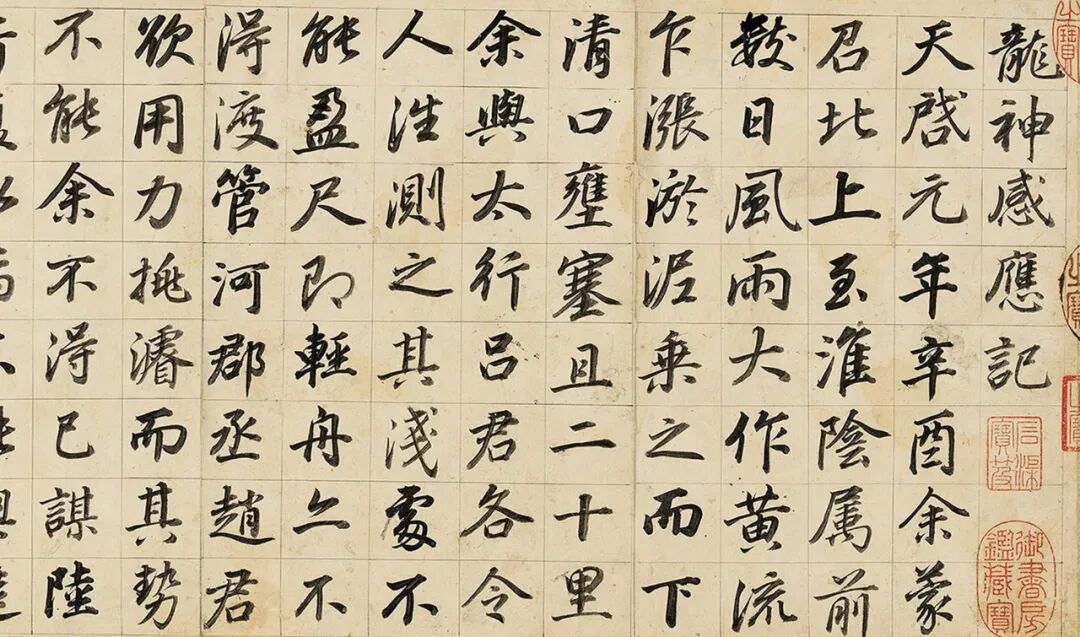 龍神感應記
天啓元年辛酉余蒙
召北上至淮陰属前
數日風雨大作黄流
乍漲淤泥乗之而下
清口壅塞且二十里
余與太行吕君各令
人往測之其淺處不
能盈尺即輕舟亦不
得渡管河郡丞趙君
欲用力挑濬而其勢
不能余不得已謀陸
石渠寶笈
御書房鑑藏寶